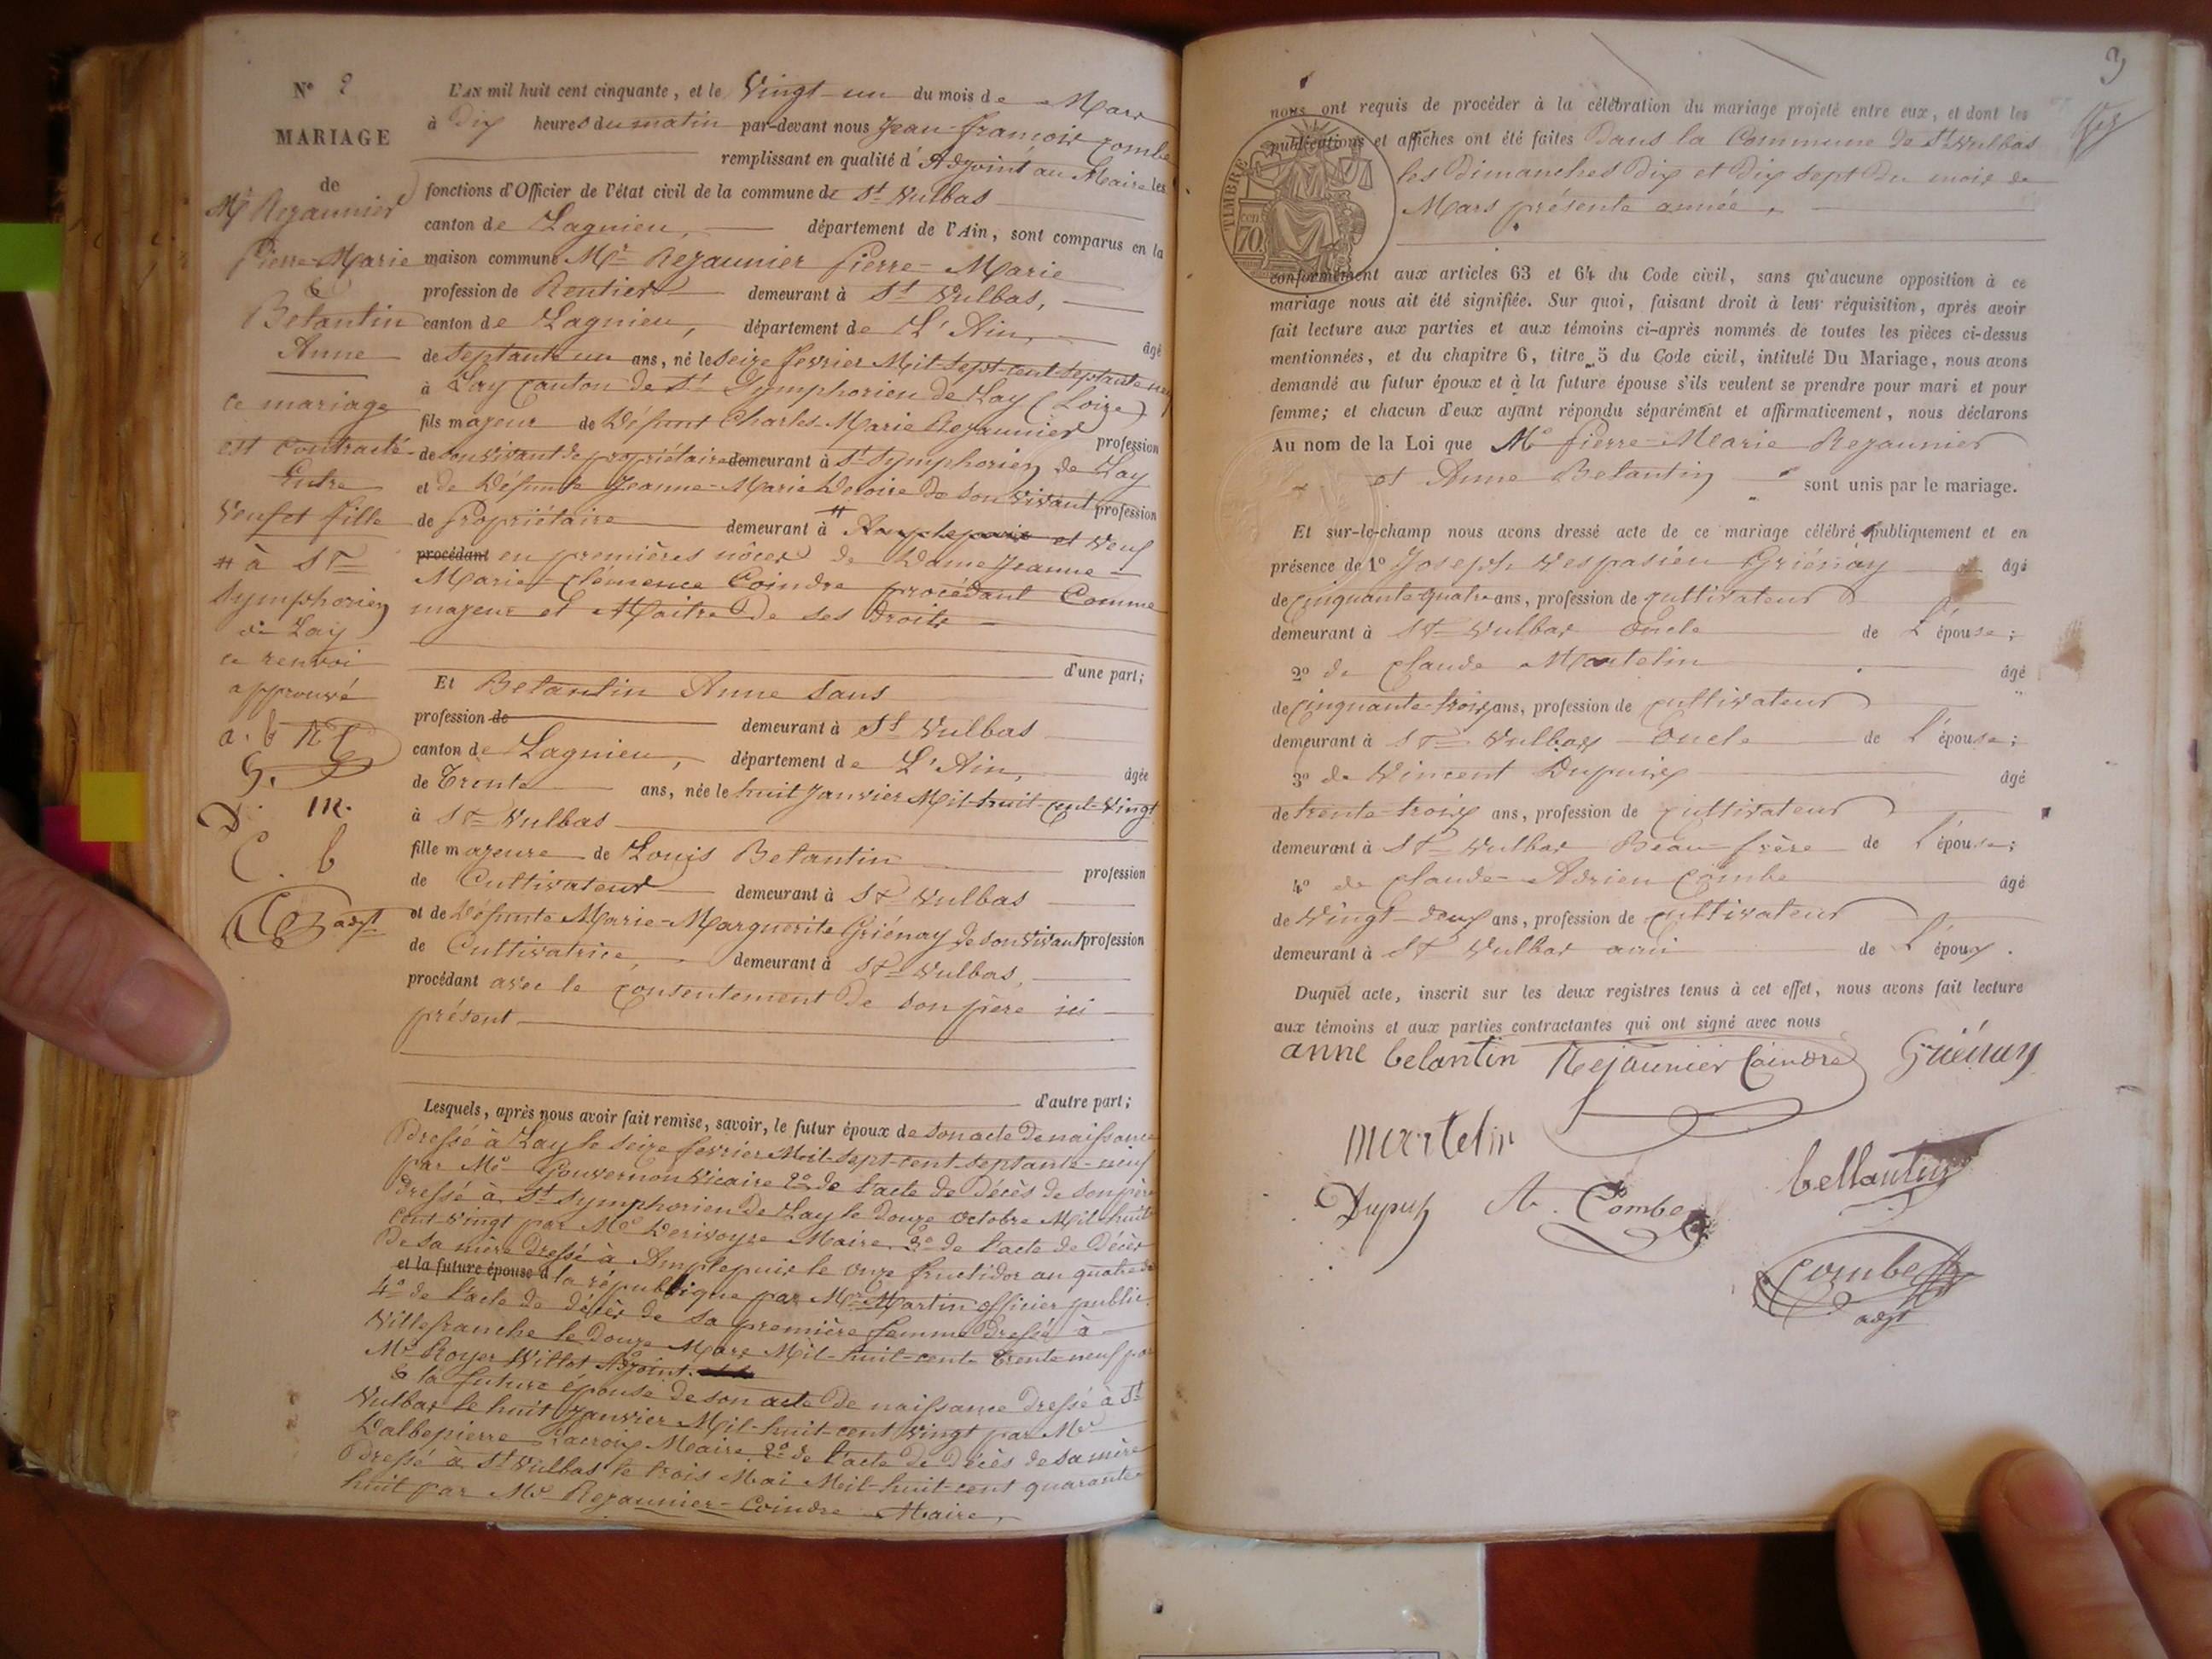 N° 2
MARIAGE
de
Mr Rejaunier
Pierre-Marie
&
Belantin
Anne
ce mariage
est contracté
Entre
Veuf et fille
# à St
Symphorien
de Lay
ce renvoi
approuvé
a. b R C
G.
D. m.
C. b
Co adjt
L'AN mil huit cent cinquante, et le Vingt-un du mois de Mars
à Dix heures du matin par-devant nous Jean-françois Combe
remplissant en qualité d'Adjoint au Maire les
fonctions d'Officier de l'état civil de la commune de St Vulbas
canton de Lagnieu, département de l'Ain, sont comparus en la
maison commune Mr Rejaunier Pierre-Marie
profession de Rentier demeurant à St Vulbas,
canton de Lagnieu, département de L'Ain, âgé
de septante un ans, né le seize fevrier Mil-sept-cent-septante neuf
à Lay canton de St Symphorien de Lay (Loire)
fils majeur de Défunt Charles-Marie Rejaunier profession
de son vivant de propriétaire demeurant à St Symphorien de Lay
et de Défunte Jeanne-Marie Deroire de son vivant profession
de Propriétaire demeurant à # Amplepuis et Veuf
procédant en premières nôces de Dame Jeanne-
Marie-Clémence Coindre procédant Comme
majeur et Maitre De ses droits
d'une part;
Et Belantin Anne sans
profession de demeurant à St Vulbas
canton de Lagnieu, département de L'Ain, âgée
de Trente ans, née le huit Janvier Mil-huit-cent-Vingt
à St Vulbas
fille majeure de Louis Belantin profession
de Cultivateur demeurant à St Vulbas
et de Défunte Marie-Marguerite Griénay de son vivant profession
de Cultivatrice, demeurant à St Vulbas,
procédant avec le consentement De son père ici
présent
d'autre part;
Lesquels, après nous avoir fait remise, savoir, le futur époux de son acte De naissance
Dressé à Lay le seize fevrier Mil-sept-cent-septante-neuf
par Mr Gouvernon Vicaire 2o de l'acte de Décès de son père
dressé à St Symphorien De Lay le Douze Octobre Mil-huit-
cent-vingt par Mr Verivoyse Maire, 3o de l'acte de Décès
De sa mère dressé à Amplepuis le Onze fructidor an quatre de
et la future épouse d la république par Mr Martin officier public.
4o de l'acte de décès de sa première femme Dressé à
Villefranche le Douze Mars Mil-huit-cent-Trente neuf par
Mr Royer Willot Adjoint.
& la future épouse De son acte De naissance Dressé à St
Vulbas le huit Janvier Mil-huit-cent Vingt par Mr
Dalbepierre Lacroix Maire, 2o de l'acte De décès de sa mère
Dressé à St Vulbas le trois Mai Mil-huit-cent quarante-
huit par Mr Rejaunier-Coindre Maire,
3
nous ont requis de procéder à la célébration du mariage projeté entre eux, et dont les
publications et affiches ont été faites Dans la Commune de St Vulbas
les Dimanches Dix et Dix sept Du mois de
Mars présente année,
TIMBRE
70
conformément aux articles 63 et 64 du Code civil, sans qu'aucune opposition à ce
mariage nous ait été signifiée. Sur quoi, faisant droit à leur réquisition, après avoir
fait lecture aux parties et aux témoins ci-après nommés de toutes les pièces ci-dessus
mentionnées, et du chapitre 6, titre 5 du Code civil, intitulé Du Mariage, nous avons
demandé au futur époux et à la future épouse s'ils veulent se prendre pour mari et pour
femme; et chacun d'eux ayant répondu séparément et affirmativement, nous déclarons
Au nom de la Loi que Mr Pierre-Marie Rejaunier
et Anne Belantin sont unis par le mariage.
Et sur-le-champ nous avons dressé acte de ce mariage célébré publiquement et en
présence de 1o Joseph Vespasien Griénay âgé
de Cinquante quatre ans, profession de Cultivateur
demeurant à St Vulbas Oncle de L'épouse;
2o de Claude Martelin âgé
de Cinquante-trois ans, profession de Cultivateur
demeurant à St Vulbas Oncle de l'épouse;
3o de Vincent Dupuis âgé
de trente-trois ans, profession de Cultivateur
demeurant à St Vulbas Beau-frère de l'épouse;
4o de Claude-Adrien Combe âgé
de Vingt-deux ans, profession de Cultivateur
demeurant à St Vulbas ami de L'époux.
Duquel acte, inscrit sur les deux registres tenus à cet effet, nous avons fait lecture
aux témoins et aux parties contractantes qui ont signé avec nous
anne belantin Rejaunier Coindre Griénay
martelin
bellantin
Dupuis A. Combe
Combe
adjt